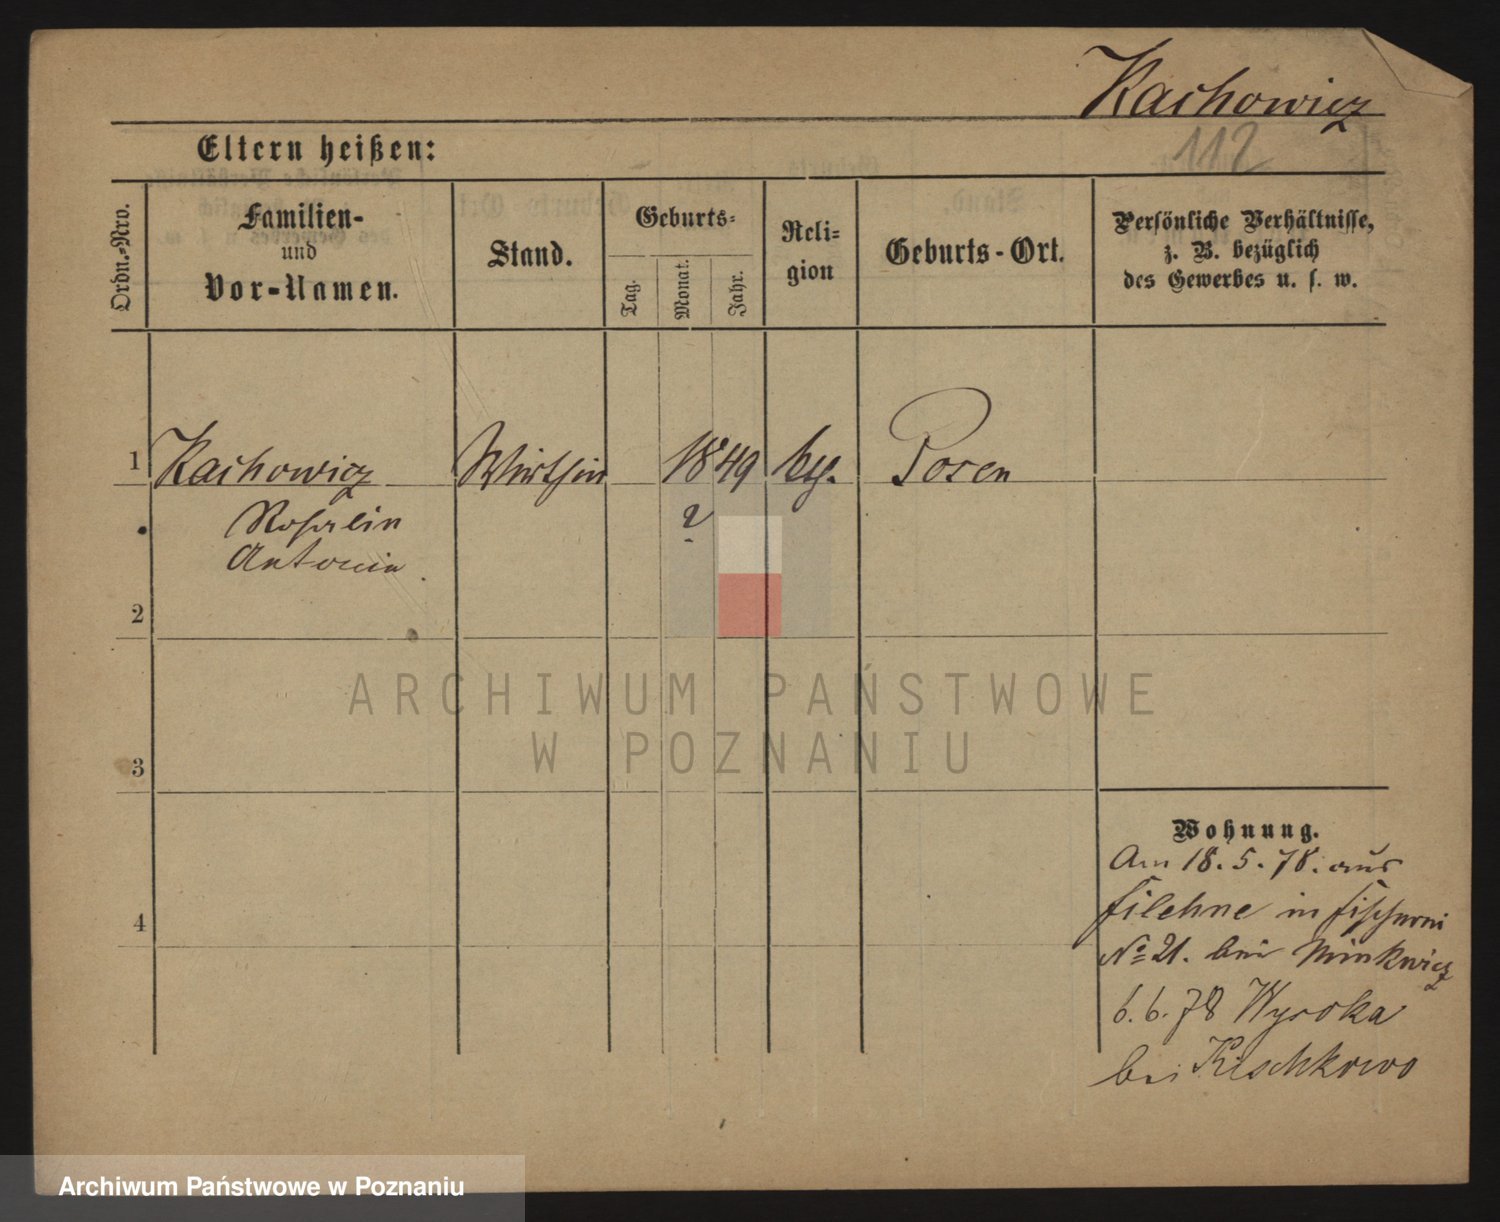 Kachowicz
112
Eltern heißen:
Ordn.-Nro.
Familien-
und
Vor-Namen.
Stand.
Geburts-
Tag.
Monat.
Jahr.
Reli-
gion
Geburts-Ort.
Persönliche Verhältnisse,
z. B. bezüglich
des Gewerbes u. s. w.
1 Kachowicz Wirthin 1849 Posen
Rosalin ?
Antonia
2
ARCHIWUM PAŃSTWOWE
W POZNANIU
3
Wohnung.
Am 18.5.78. aus
Filehne in Fischerei
No 21. bei Minkwicz
4
6.6.78 Wysoka
bei Kischkowo
Archiwum Państwowe w Poznaniu